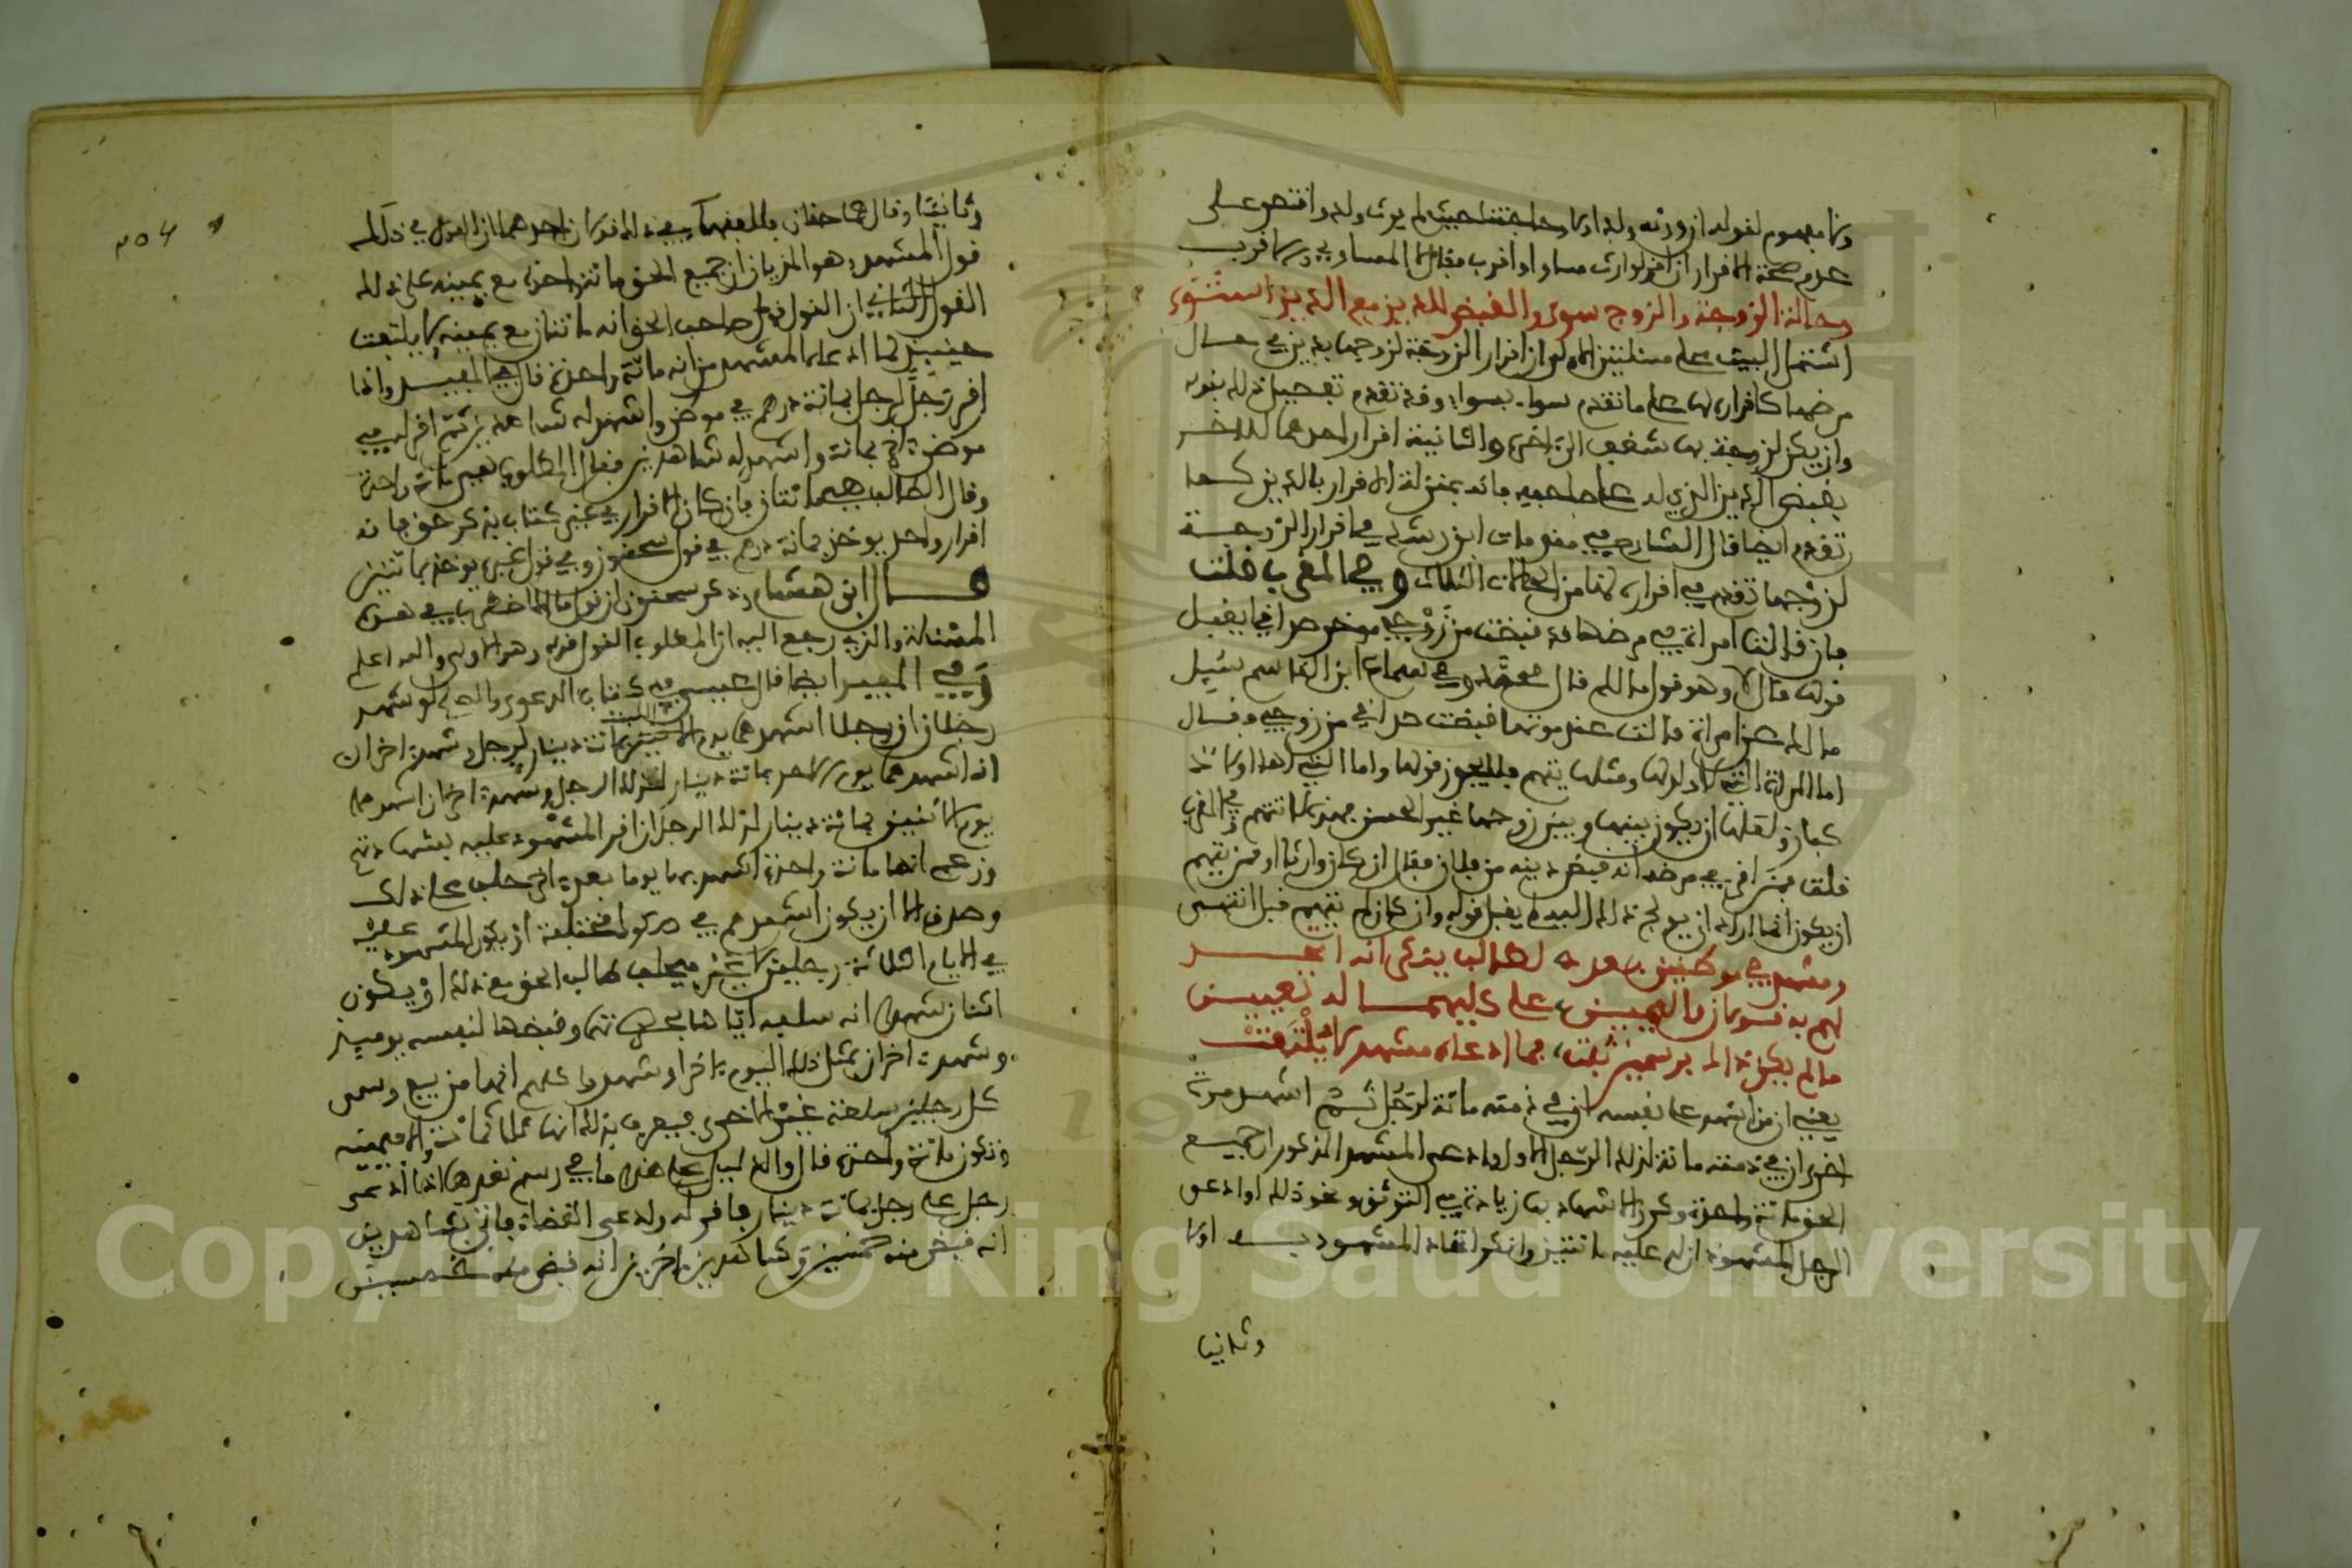 ولا مفهوم لقوله ان ورثه ولد اذ كذلك حيث لم يرث ولد واقتصر على
عدم صحة الاقرار ان اقر لوارث مساو او اقرب مقابل المساوي ولا قرب
وحالة الزوجة والزوج سوى والقبض للدين مع الدين استوى
اشتمل البيت على مسئلتين الاولى ان اقرار الزوجة لزوجها بدين في حال
مرضها كاقراره لها على ما تقدم سواء بسواء وقد تقدم تفصيل ذلك بقوله
وان يكن لزوجة بها شغف الى اخره والثانية اقرار احدهما للاخر
بقبض الدين الذي له على صاحبه فانه بمنزلة الاقرار بالدين كما
تقدم ايضا قال الشارح في مقدمات ابن رشد في اقرار الزوجة
لزوجها تقدم في اقراره لها من الحالات الثلاث وفي المغرب قلت
فان قالت امراة في مرضها قد قبضت من زوجي موخر صداقي ايقبل
قولها قال لا وهو قول مالك قال محمد وفي سماع ابن القاسم سئل
مالك عن امراة قالت عند موتها قبضت صداقي من زوجي فقال
اما المراة التي لا ولد لها ومثلها يتهم فلا يجوز قولها واما التي لها اولاد
كبار ولعلها ان يكون بينها وبين زوجها غير الحسن فهذه لا تتهم وفي المغرب
قلت فمن اقر في مرضه انه قبض دينه من فلان فقال ان كان وارثا او ممن يتهم
ان يكون انما اراد ان يولج ذلك اليه لم يقبل قوله وان كان لا يتهم قبل انتهى
ومشهد في موطنين بعدد لطالب ينكر انه اتحد
لهم به قولان واليمين على كليهما له تعيين
ما لم يكن ذاك برسمين ثبت فما ادعاه مشهد لا يلتفت
يعني ان من اشهد على نفسه ان في ذمته مائة لرجل ثم اشهد مرة
اخرى ان في ذمته مائة لذلك الرجل الاول وادعى المشهد المذكور ان جميع
الحق مائة واحدة وكرر الاشهاد بها زيادة في التوثق ونحو ذلك وادعى
الرجل المشهود له ان له عليه مائتين وانكر اتحاد المشهود به اولا
وثانيا
وثانيا وقال هما حقان
قول المشهد وهو المديان ان جميع الحق مائة واحدة مع يمينه على ذلك
القول الثاني ان القول قول صاحب الحق انه مائتان مع يمينه ولا يلتفت
حينئذ لما ادعاه المشهد من انه مائة واحدة قال في المفيد واذا
اقر رجل لرجل بمائة درهم في موطن واشهد له شاهدين ثم اقر له في
موطن اخر بمائة واشهد له شاهدين فقال المطلوب هي مائة واحدة
وقال الطالب هما مائتان فان كان الاقرار في غير كتاب ذكر حق فانه
اقرار واحد يوخذ بمائة درهم في قول سحنون وفي قول غيره يوخذ بمائتين
قال ابن هشام وذكر سحنون ان قول مالك اضطرب في هذه
المسئلة والذي رجع اليه ان المطلوب القول قوله وهو الاولى والله اعلم
وفي المفيد ايضا قال عيسى في كتاب الدعوى والصلح لو شهد
رجلان ان رجلا اشهدهما يوم السبت بمائة دينار لرجل وشهد اخران
انه اشهدهما يوم الاحد بمائة دينار لذلك الرجل وشهد اخران انه اشهدهما
يوم الاثنين بمائة دينار لذلك الرجل ان اقر المشهود عليه بشهادتهم
وزعم انها مائة واحدة اشهد بها يوما بعد اخر حلف على ذلك
وصدق الا ان يكون اشهدهم في صكوك مختلفة او يكون المشهود عليه
في الايام الثلاثة رجلين اثنين فيحلف طالب الحق مع ذلك او يكون
اثنان شهدا انه سلفه اياها وقبضها لنفسه يومئذ
وشهد اخران بمثل ذلك اليوم الاخر او شهدوا كلهم انها من بيع وسمى
كل رجلين سلعة غير الاخرى فيعرف بذلك انها ثلاثمائة والا فيمينه
وتكون مائة واحدة قال والدليل على هذا ما في رسم نقدها اذا ادعى
رجل على رجل بمائة دينار فاقر له وادعى القضاء فاتى بشاهدين
انه قبض منه خمسين وشاهدين اخرين انه قبض منه خمسين